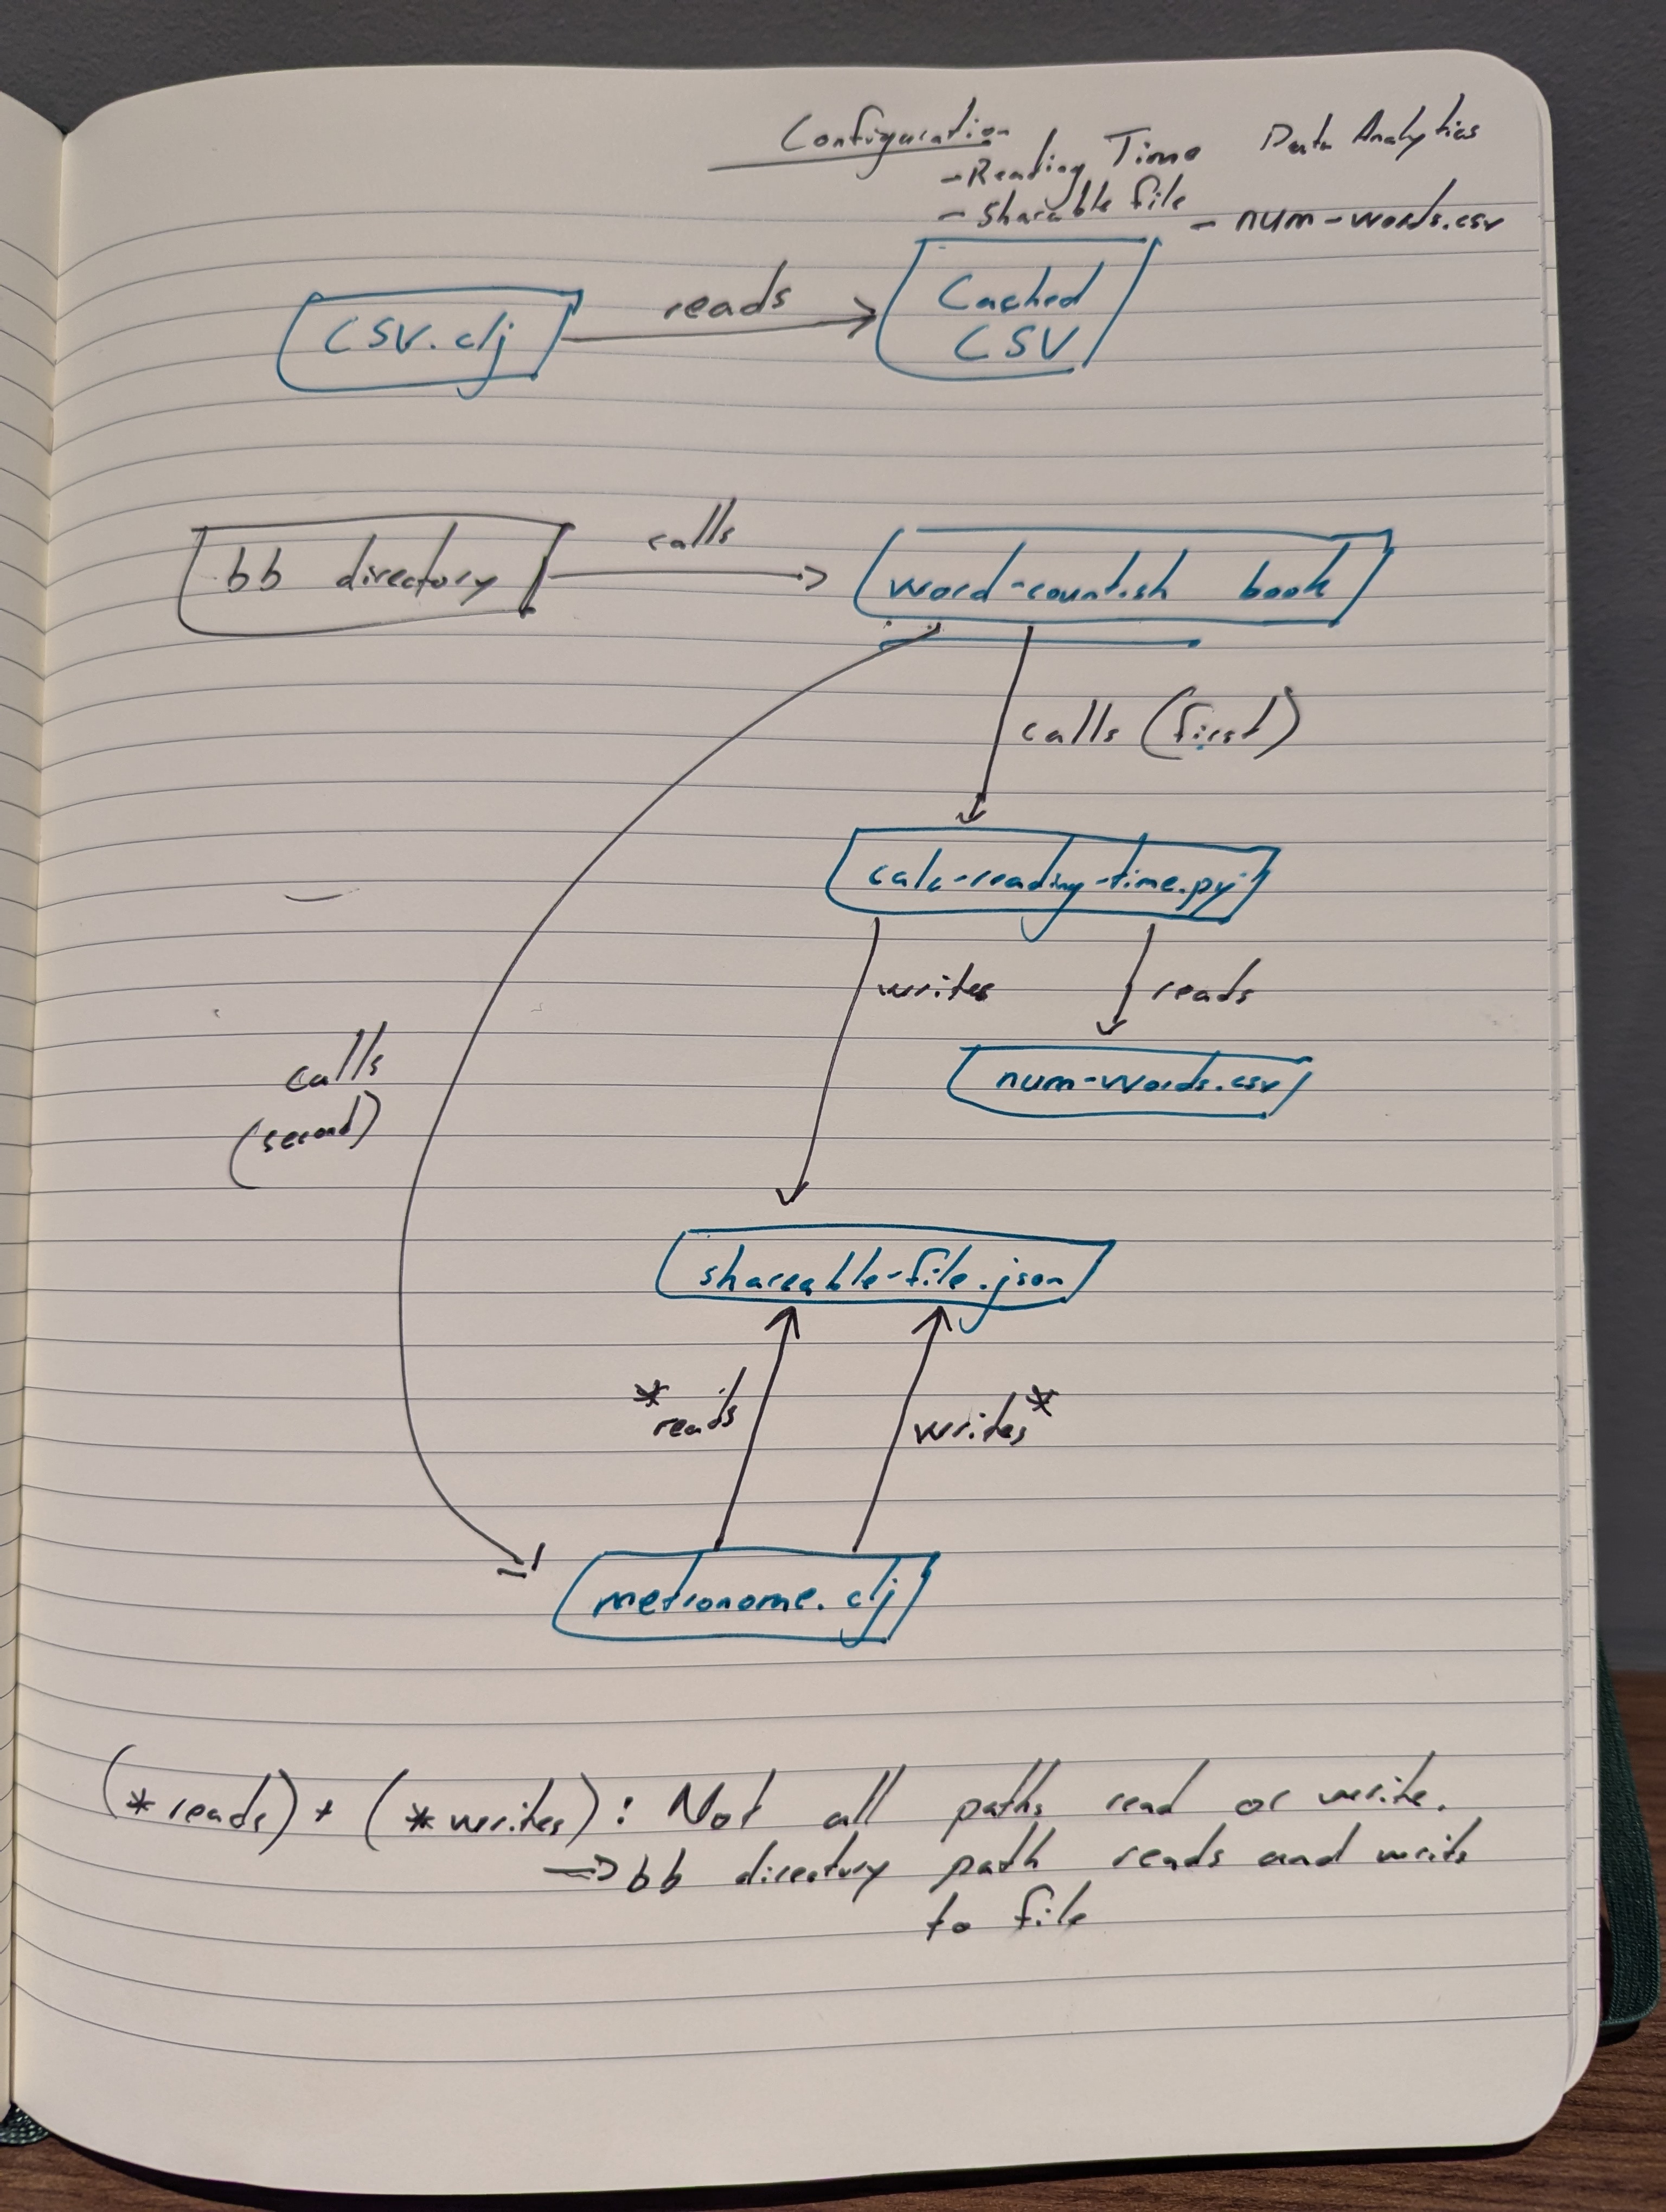 Configuration
- Reading Time Data Analytics
- Sharable file - num-words.csv
CSV.clj reads Cached
CSV
bb directory calls word-count.sh book
calls (first)
calc-reading-time.py
writes reads
calls
(second)
num-words.csv
shareable-file.json
*reads writes*
metronome.clj
(*reads) + (*writes): Not all paths read or write.
=> bb directory path reads and write
to file